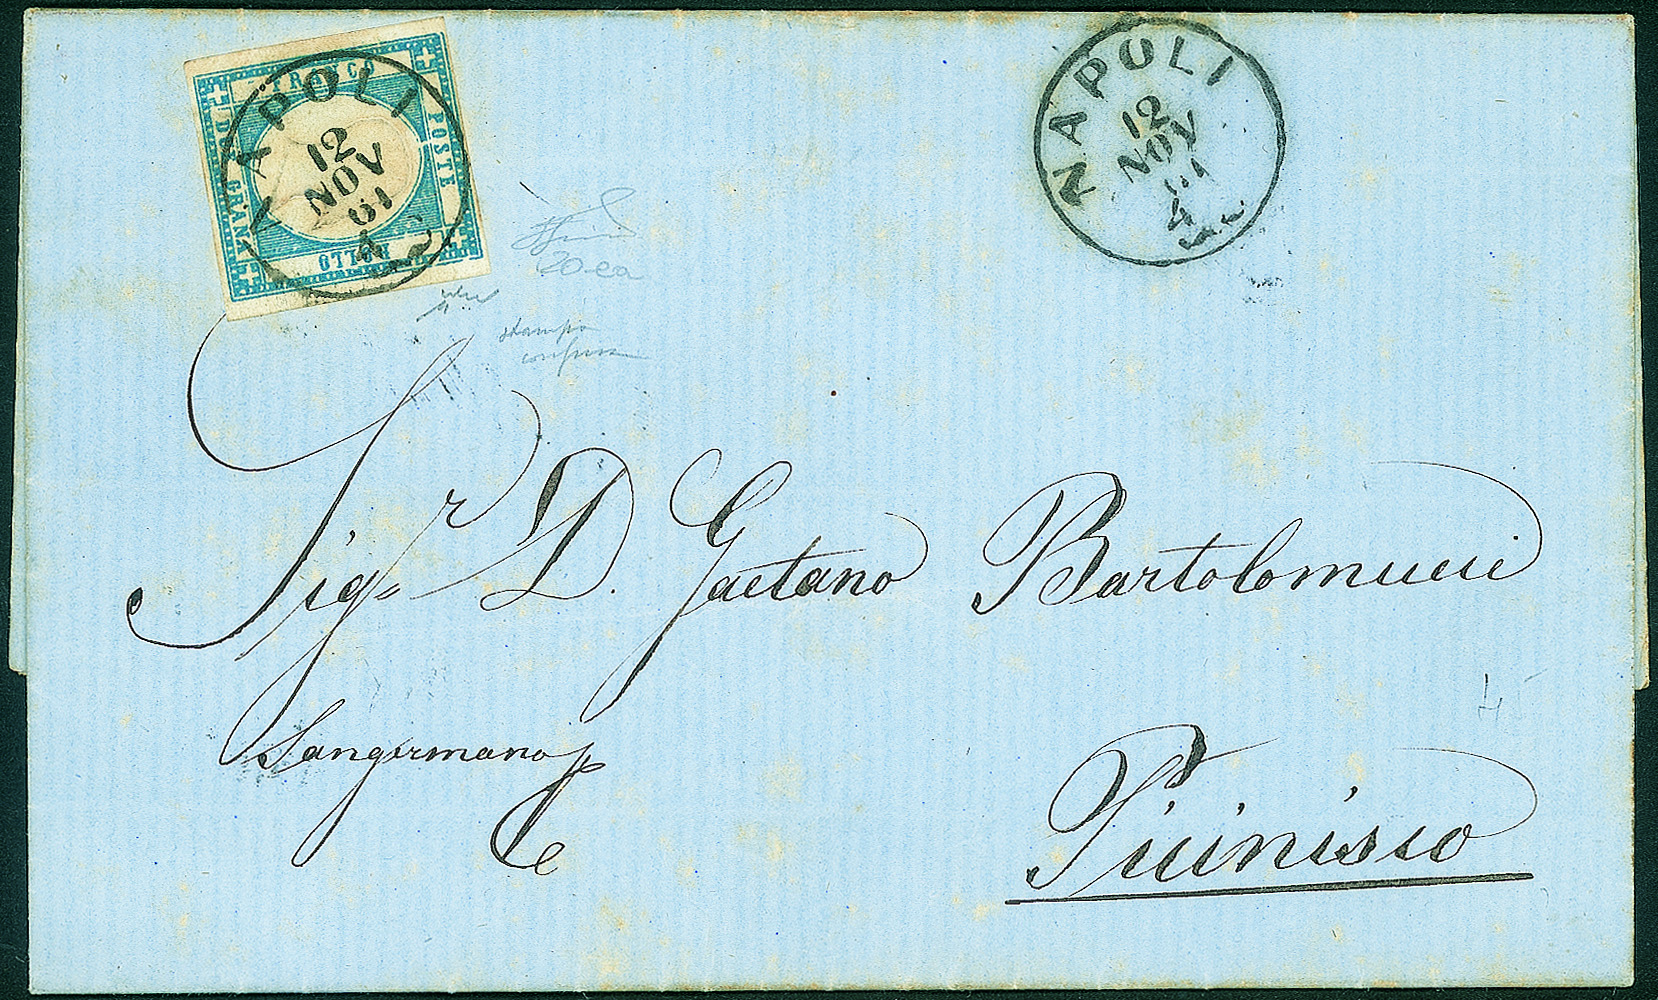 FRANCO
POSTE
BOLLO
DUE GRANA
NAPOLI
12
NOV
61
4
NAPOLI
12
NOV
61
4
20-ea
stampa
confusa
Sig.r D. Gaetano Bartolomucci
Sangermano p
Picinisco